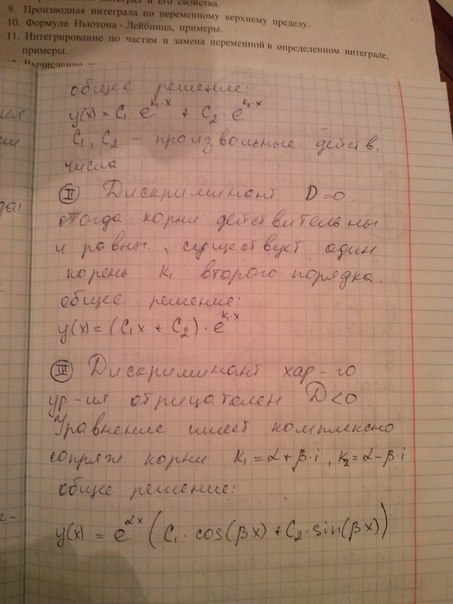 и его свойства.
9. Производная интеграла по переменному верхнему пределу.
10. Формула Ньютона - Лейбница, примеры.
11. Интегрирование по частям и замена переменной в определенном интеграле,
примеры.
Вычисление
общее решение:
y(x) = C₁ e^{k₁·x} + C₂ · e^{k₂·x}
C₁, C₂ – произвольные действ.
числа
II Дискриминант D=0.
Тогда корни действительны
и равны, существует один
корень k₁ второго порядка.
общее решение:
y(x) = (C₁x + C₂) · e^{k₁·x}
III Дискриминант хар-го
ур-ия отрицателен D<0
Уравнение имеет комплексно
сопряж корни k₁ = α + β·i, k₂ = α – β·i
общее решение:
y(x) = e^{αx} (C₁ · cos(βx) + C₂ · sin(βx))